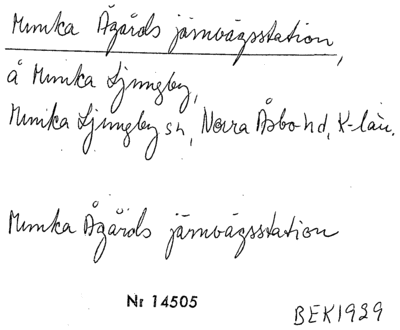 Munka Ågårds järnvägsstation,
å Munka Ljungby,
Munka Ljungby sn, Norra Åsbo hd, K-län.
Munka Ågårds järnvägsstation
Nr 14505
BEK1929